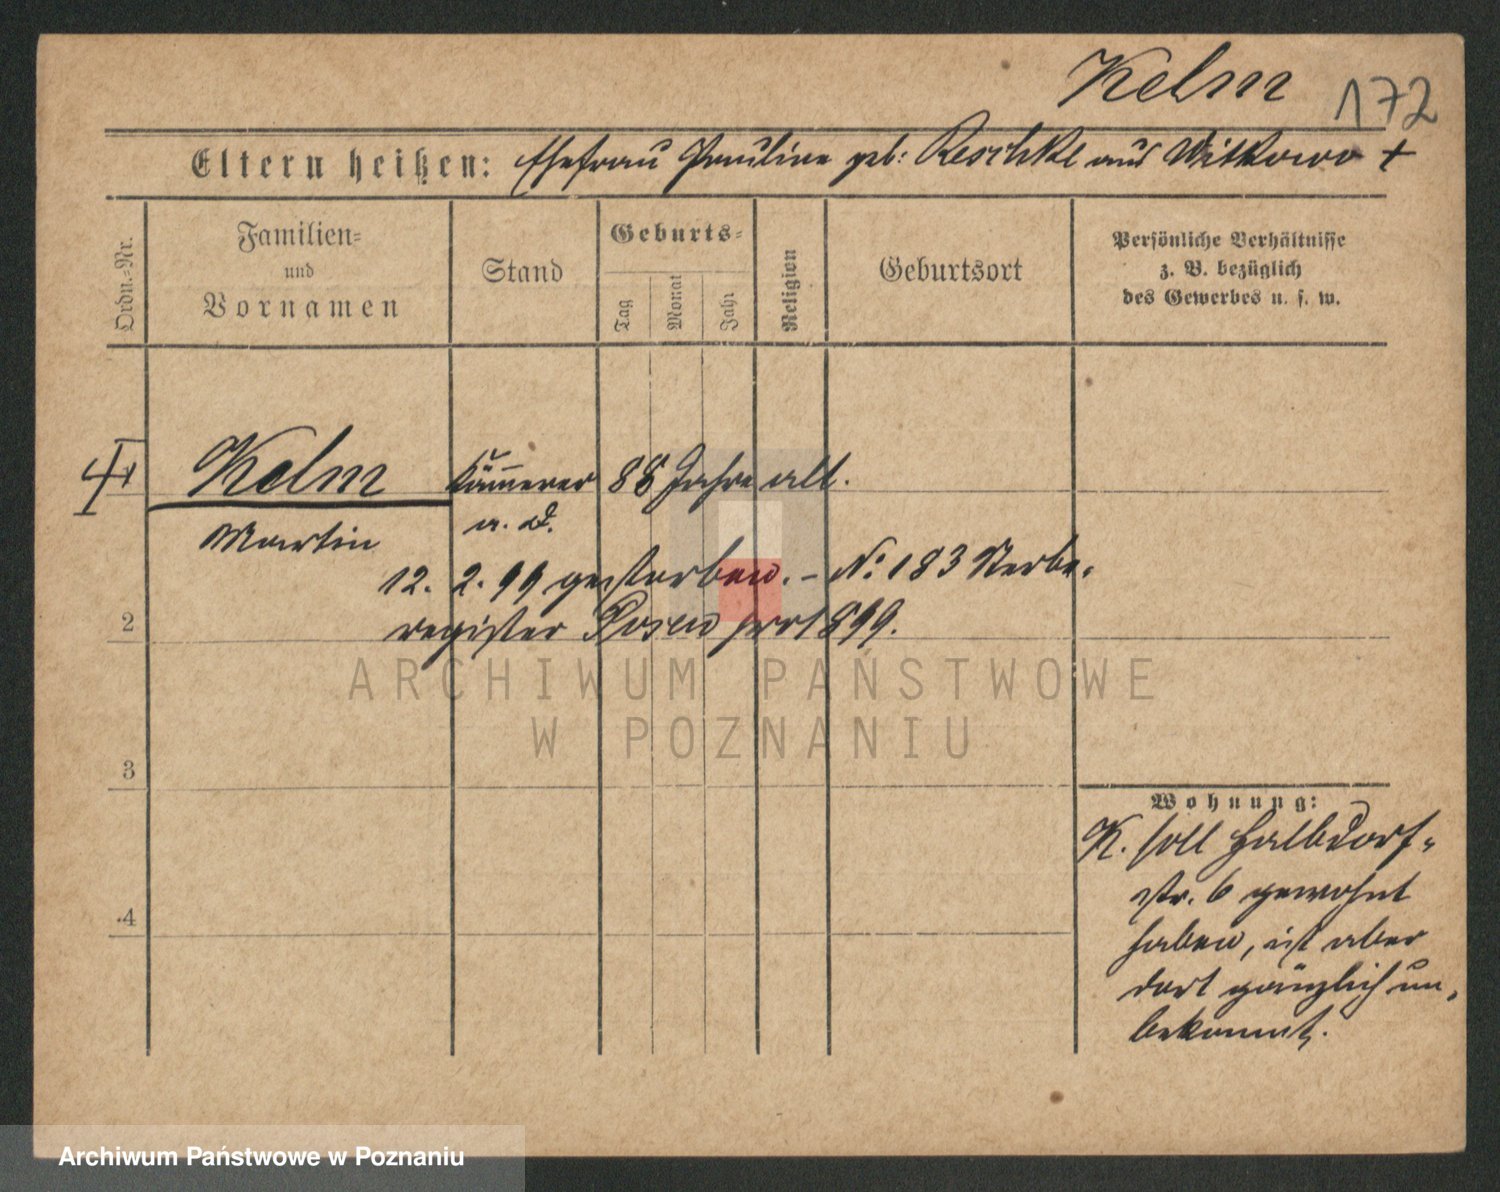 Kelm 172
Eltern heißen: Ehefrau Pauline geb: Reschke aus Witkowo +
Ordn.-Nr.
Familien-
und
Vornamen
Stand
Geburts-
Tag
Monat
Jahr
Religion
Geburtsort
Persönliche Verhältnisse
z. B. bezüglich
des Gewerbes u. s. w.
1 Kelm Kämmerer 88 Jahre alt.
Martin a. D.
12. 2. 99 gestorben. – No: 183 Sterbe-
2 register Posen pro 1899.
3
4
Wohnung:
K. soll Halbdorf-
str. 6 gewohnt
haben, ist aber
dort gänzlich un-
bekannt.
ARCHIWUM PAŃSTWOWE
W POZNANIU
Archiwum Państwowe w Poznaniu